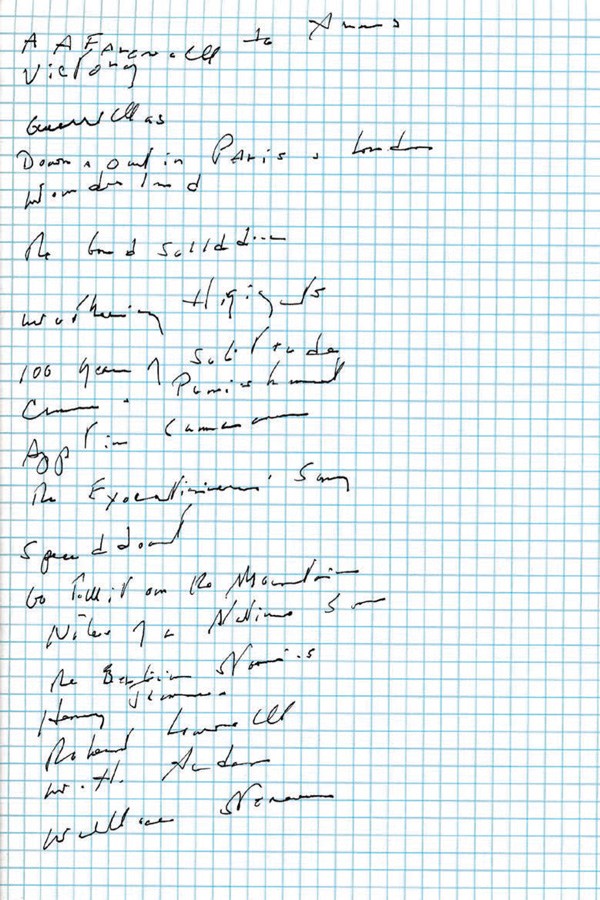 A Farewell to Arms
Victory
Guerrillas
Down & out in Paris & London
Wonderland
The Good Soldier
Wuthering Heights
100 Years of Solitude
Crime & Punishment
App in
The Executioner's Song
Speedboat
Go Tell it on the Mountain
Notes of a Native Son
The Stories
Henry James
Robert Lowell
W. H. Auden
Wallace Stevens